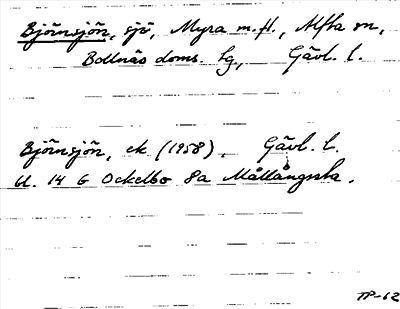 Björnsjön, sjö, Myra m.fl., Alfta sn,
Bollnäs doms. lg., Gävl. l.
Björnsjön, ek (1958), Gävl. l.
Bl. 14 G Ockelbo 8a Mållångssta.
TP-62